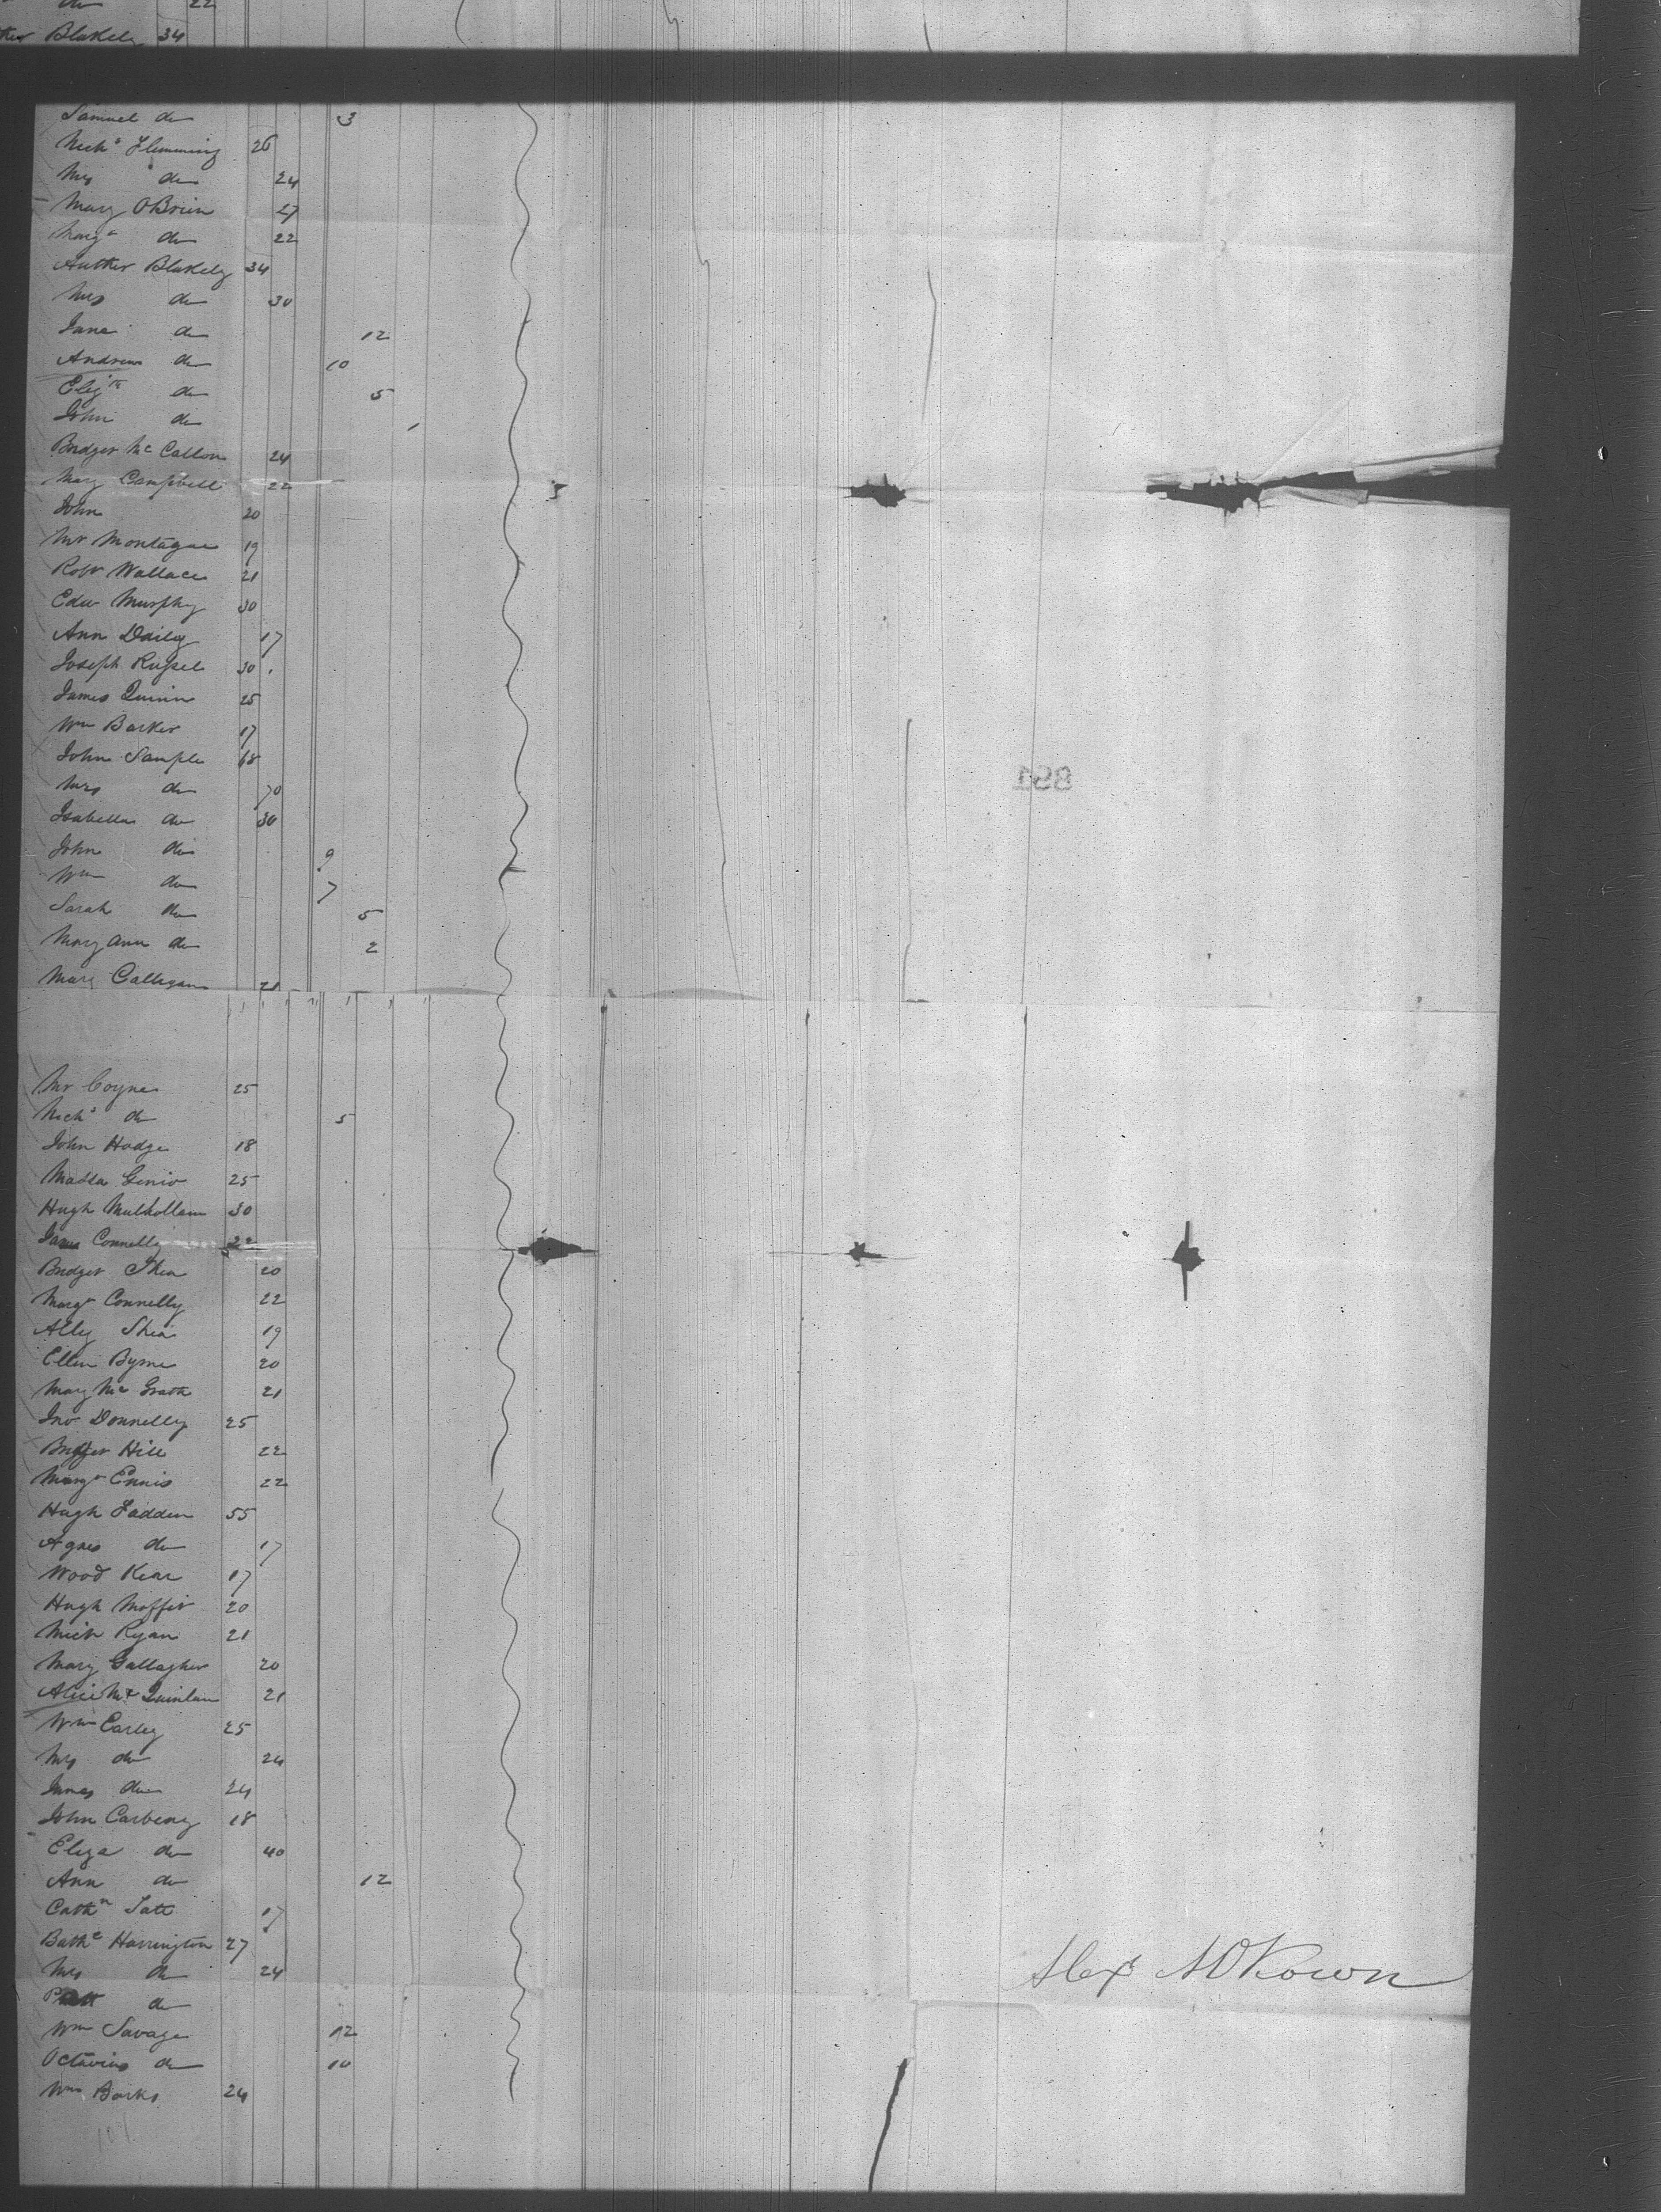 do 22
Blakely 34
Samuel do 3
Mich Flemming 26
Mrs do 24
Mary OBrien 27
Marg do 22
Auther Blakely 34
Mrs do 30
Jane do 12
Andrew do 10
Eliz do 5
John do
Bridget Mc 24
Mary Campbell 22
John 20
Mr Montague 19
Robt Wallace 21
Edw Murphy 30
Ann Daily 17
Joseph Russel 30
James Quinn 25
Wm Barker 17
John Sample 68
Mrs do 70
Isabella do 30
John do 9
Wm do 7
Sarah do 5
Mary Ann do 2
Mary Calligan 21
891
Mr Coyne 25
Mich do 5
John Hodge 18
25
Hugh Mulhollan 30
James Connelly 22
Bridget Shea 20
Marg Connelly 22
Ally Shea 19
Ellen Byrne 20
Mary Mc Grath 21
Jno Donnelly 25
Hill 22
Marg Ennis 22
Hugh Fadden 55
Agnes do 17
Wood Kear 17
Hugh Moffit 20
Mich Ryan 21
Mary Gallagher 20
Alice Quinlan 21
Wm Earley 25
Mrs do 24
James do 24
John Carbery 18
Eliza do 40
Ann do 12
Cathn Tate 17
Harrington 27
Mrs do 24
do
Wm Savage 12
Octavius do 10
Wm Barks 24
101
Alexr McKown